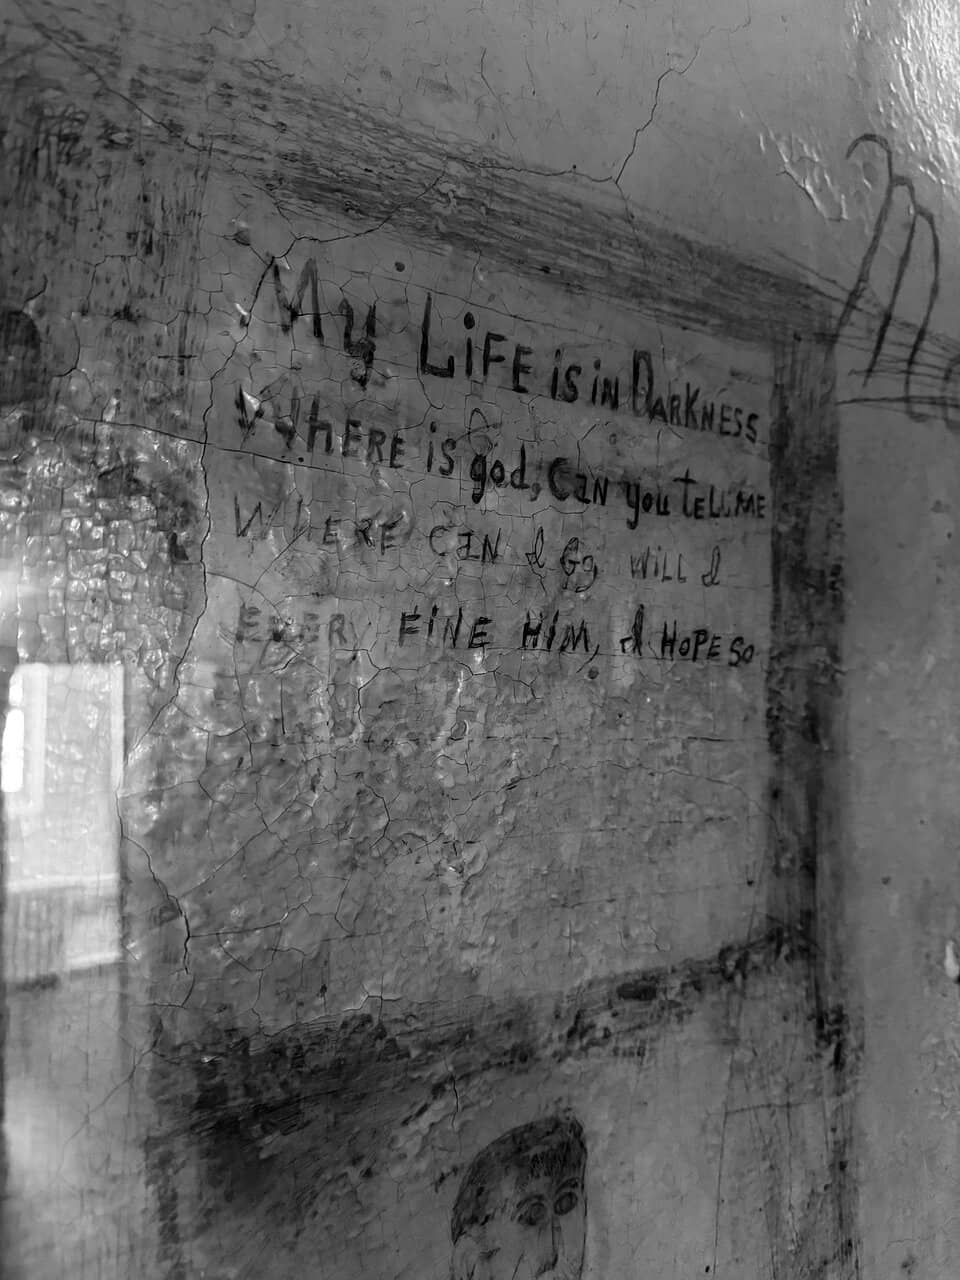 My LiFE is in DARKNESS
WHERE is god, CAN you tELL ME
WHERE CAN I GO, WiLL I
EVER FINE HIM, I HOPE SO